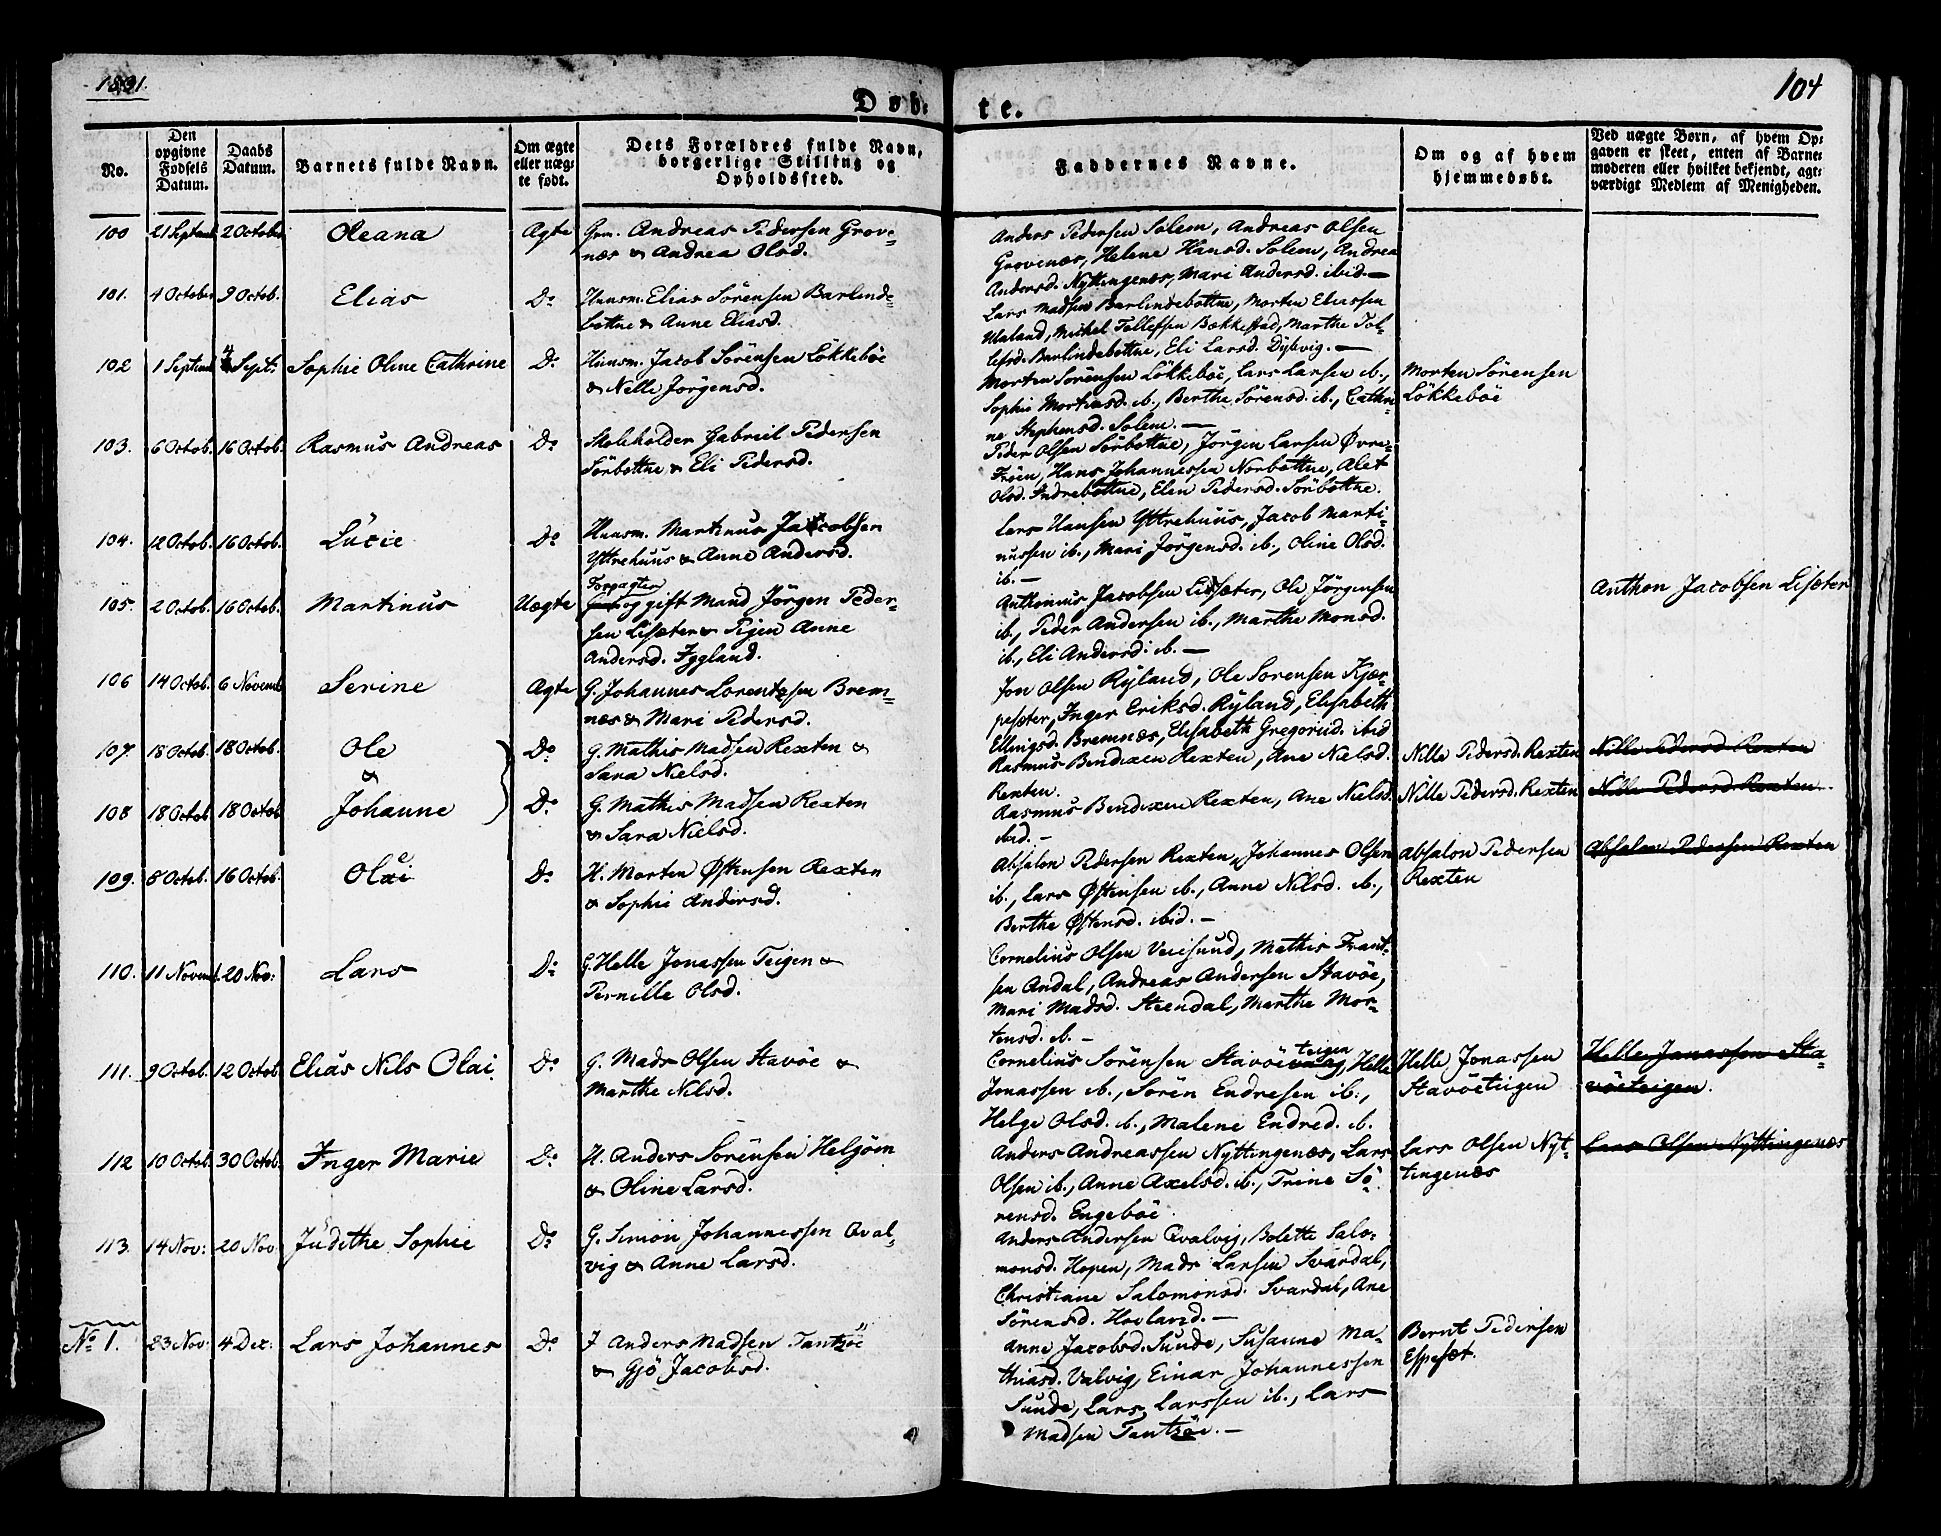 1831.
104
Døb-
te.
No.
Den
opgivne
Fødsels
Datum.
Daabs
Datum.
Barnets fulde Navn.
Om ægte
eller uæg-
te født.
Dets Forældres fulde Navn,
borgerlige Stilling og
Opholdssted.
Faddernes Navne.
Om og af hvem
hjemmedøbt.
Ved uægte Børn, af hvem Op-
gaven er skeet, enten af Barne-
moderen eller hvilket bekjendt, agt-
værdigt Medlem af Menigheden.
100 21 Septemb 2 October Oleana Ægte Grm. Andreas Pedersen Grove-
næs & Andrea Olsd.
Anders Pedersen Solem, Andreas Olsen
Grovenæs, Helene Hansd. Solem, Andrea
Andersd. Nyttingenæs, Mari Andersd. ibid.—
101. 4 October 9 Octob. Elias Do Huusm. Elias Sörensen Barlinde-
bottne & Anne Eliasd.
Lars Madsen Barlindebottne, Morten Eliassen
Ualand, Michel Tollefsen Bækkestad, Marthe Tol-
lefsd. Barlindebottne, Eli Larsd. Dybvig.—
102 1 Septemb 4 Sept. Sophie Oline Cathrine Do Huusm. Jacob Sörensen Lökkeböe
& Nelle Jörgensd.
Morten Sörensen Lökkeböe, Lars Larsen ib.,
Sophie Mortensd. ib., Berthe Sörensd. ib., Cathri-
ne Stephensd. Solem.—
Morten Sörensen
Lökkeböe
103. 6 Octob. 16 Octob. Rasmus Andreas Do Skoleholder Gabriel Pedersen
Sörbottne & Eli Pedersd.
Peder Olsen Sörbottne, Jörgen Larsen Øvre-
Fröen, Hans Johannessen Norbottne, Alet
Olsd. Indrebottne, Elen Pedersd. Sörbottne.
104. 12 Octob. 16 Octob. Lücie Do Huusm. Martinus Jacobsen
Yttrehuus & Anne Andersd.
Lars Hansen Yttrehuus, Jacob Marti-
nussen ib., Mari Jörgensd. ib., Oline Olsd.
ib.—
105. 2 Octob. 16 Octob. Martinus Uægte Forpagter
og gift Mand Jörgen Peder-
sen Lisæter & Pigen Anne
Andersd. Iggland.
Anthonius Jacobsen Lisæter, Ole Jörgensen
ib., Peder Andersen ib., Marthe Monsd.
ib., Eli Andersd. ib.—
Anthon Jacobsen Lisæter
106 14 Octob. 6 Novemb Serine Ægte G. Johannes Lorentzsen Brem-
næs & Mari Pedersd.
Jon Olsen Ryland, Ole Sorensen Kjær-
pesæter, Inger Eriksd. Ryland, Elisabeth
Ellingsd. Bremnæs, Elisabeth Gregoriid. ibid
107. 18 Octob. 18 Octob. Ole Do G. Mathis Madsen Rexten &
Sara Nielsd.
&
Rasmus Bendixen Rexten, Ane Nielsd.
Rexten.
Nille Pedersd. Rexten
Nille Pedersd. Rexten
108 18 Octob 18 Octob Johanne Do G. Mathis Madsen Rexten
& Sara Nielsd.
Rasmus Bendixen Rexten, Ane Nielsd
ibid.—
Nille Pedersd. Rexten
Nille Pedersd. Rexten.
109. 8 Octob. 16 Octob. Do H. Morten Østensen Rexten
& Sophie Andersd.
Absalon Pedersen Rexten, Johannes Olsen
ib., Lars Østensen ib., Anne Nilsd. ib.,
Berthe Østensd. ibid.—
Absalon Pedersen
Rexten
Absalon Pedersen Rexten
110. 11 Novemb. 20 Nov: Lars Do G. Helle Jonassen Teigen &
Pernille Olsd.
Cornelius Olsen Veiesund, Mathis Frant-
sen Andal, Andreas Andersen Stavöe,
Mari Madsd. Steendal, Marthe Mor-
tensd. ib.—
111. 9 Octob. 12 Octob Elias Nils Olai. Do G. Mads Olsen Stavöe &
Marthe Nilsd.
Cornelius Sörensen Stavöe teigen, Helle
Jonassen ib., Sören Endresen ib.,
Helge Olsd. ib., Malene Endred. ib.
Helle Jonassen
Stavöeteigen
Helle Jonassen Sta-
vöeteigen.
112 10 Octob. 30 Octob. Inger Marie Do H. Anders Sörensen Helgöen
& Oline Larsd.
Anders Andreassen Nyttingenæs, Lars
Olsen ib., Anne Axelsd. ib., Trine Sö-
rensd. Engeböe.
Lars Olsen Nyt-
tingenæs
Lars Olsen Nyttingenæs
113. 14 Nov: 20 Nov. Judithe Sophie Do G. Simon Johannessen Qval-
vig & Anne Larsd.
Anders Andersen Qvalvig, Bolette Salo-
monsd. Hopen, Mads Larsen Svardal,
Christiane Salomonsd. Svardal, Ane
Sörensd. Hovland.—
No 1. 23 Nov: 4 Dec: Lars Johannes Do J Anders Madsen Tantzöe
& Gjö Jacobsd.
Anne Jacobsd. Sunde, Susanne Ma-
thiasd. Valvig, Einar Johannessen
Sunde, Lars Larssen ib., Lars
Madsen Tantzöe.—
Bernt Pedersen
Espeset.